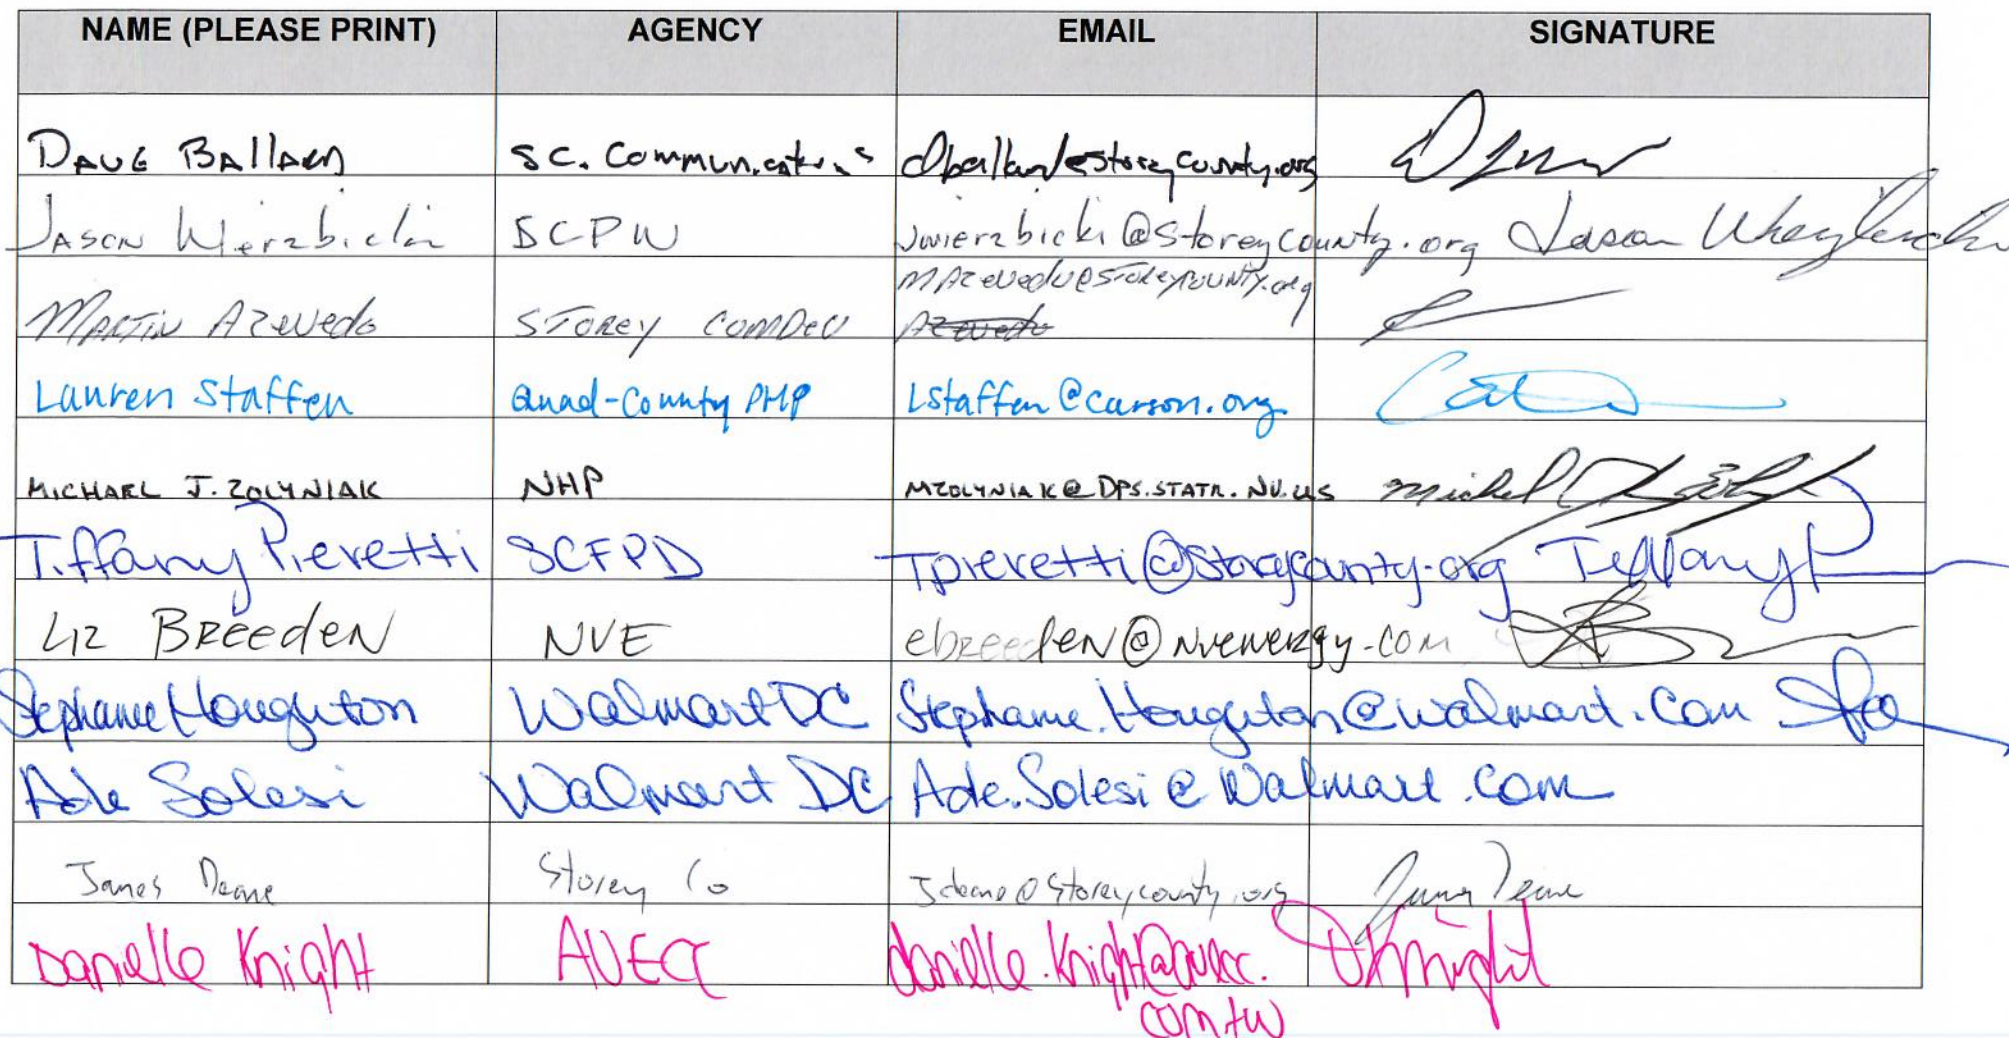 NAME (PLEASE PRINT) AGENCY EMAIL SIGNATURE
DAVE BALLARD SC. Communications dballard@storeycounty.org
JASON Wierzbicki SCPW Jwierzbicki@storeycounty.org Jason
MAzevedo@STOREYCOUNTY.org
MARTIN AZEVEDO STOREY COMDEV Azevedo
Lauren Staffen Quad-County PHP Lstaffen@carson.org
MICHAEL J. ZOLYNIAK NHP MZOLYNIAK@DPS.STATE.NV.US Michael
Tiffany Pieretti SCFPD Tpieretti@storeycounty.org Tiffany P
LIZ BREEDEN NVE ebreeden@nvenergy.com
Stephanie Houghton Walmart DC Stephanie.Houghton@walmart.com
Ade Solesi Walmart DC Ade.Solesi@Walmart.com
James Deane Storey Co Jdeane@storeycounty.org James Deane
Danielle Knight AVECC danielle.knight@avecc. DKnight
com.tw